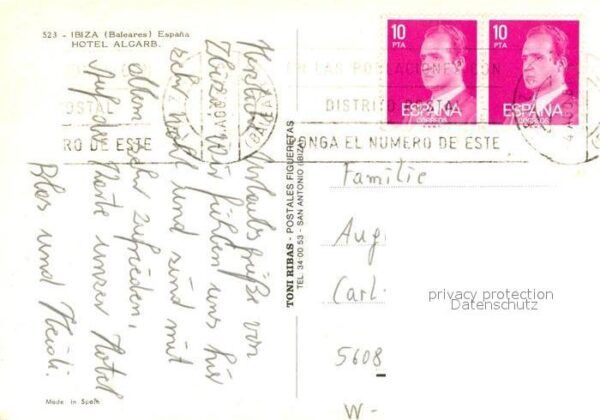 523 - IBIZA (Baleares) España
HOTEL ALGARB.
10
PTA
10
PTA
ESPAÑA
CORREOS
ESPAÑA
CORREOS
EN LAS POBLACIONES CON
DISTRITO
POSTAL
PONGA EL NUMERO DE ESTE
RO DE ESTE
Herzliche Urlaubsgrüße von
Ibiza. Wir fühlen uns hier
sehr wohl und sind mit
allem sehr zufrieden,
Auf der Karte unser Hotel
und Heidi.
TONI RIBAS - POSTALES FIGUERETAS
TEL. 34 00 53 - SAN ANTONIO (IBIZA)
Familie
Aug
Carl-
5608
W-
privacy protection
Datenschutz
Made in Spain